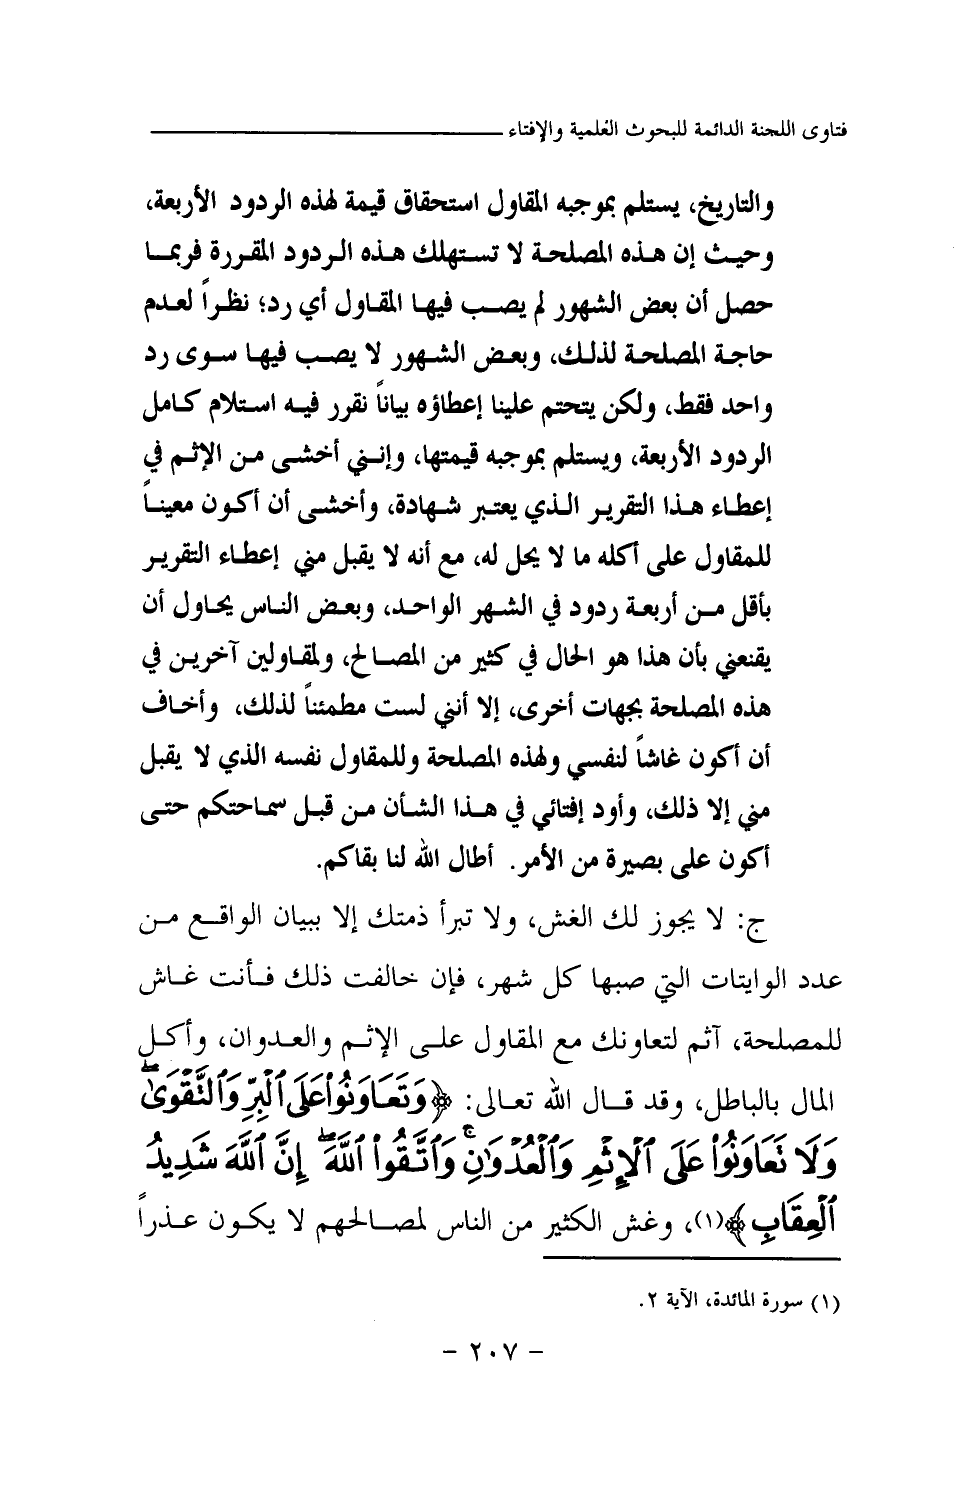 فتاوى اللجنة الدائمة للبحوث العلمية والإفتاء
والتاريخ، يستلم بموجبه المقاول استحقاق قيمة لهذه الردود الأربعة،
وحيث إن هذه المصلحة لا تستهلك هذه الردود المقررة فربما
حصل أن بعض الشهور لم يصب فيها المقاول أي رد؛ نظراً لعدم
حاجة المصلحة لذلك، وبعض الشهور لا يصب فيها سوى رد
واحد فقط، ولكن يتحتم علينا إعطاؤه بياناً نقرر فيه استلام كامل
الردود الأربعة، ويستلم بموجبه قيمتها، وإنني أخشى من الإثم في
إعطاء هذا التقرير الذي يعتبر شهادة، وأخشى أن أكون معيناً
للمقاول على أكله ما لا يحل له، مع أنه لا يقبل مني إعطاء التقرير
بأقل من أربعة ردود في الشهر الواحد، وبعض الناس يحاول أن
يقنعني بأن هذا هو الحال في كثير من المصالح، ولمقاولين آخرين في
هذه المصلحة بجهات أخرى، إلا أنني لست مطمئناً لذلك، وأخاف
أن أكون غاشاً لنفسي ولهذه المصلحة وللمقاول نفسه الذي لا يقبل
مني إلا ذلك، وأود إفتائي في هذا الشأن من قبل سماحتكم حتى
أكون على بصيرة من الأمر. أطال الله لنا بقاكم.
ج: لا يجوز لك الغش، ولا تبرأ ذمتك إلا ببيان الواقع من
عدد الوايتات التي صبها كل شهر، فإن خالفت ذلك فأنت غاش
للمصلحة، آثم لتعاونك مع المقاول على الإثم والعدوان، وأكل
المال بالباطل، وقد قال الله تعالى: ﴿وَتَعَاوَنُوا۟ عَلَى ٱلْبِرِّ وَٱلتَّقْوَىٰ ۖ
وَلَا تَعَاوَنُوا۟ عَلَى ٱلْإِثْمِ وَٱلْعُدْوَٰنِ ۚ وَٱتَّقُوا۟ ٱللَّهَ ۖ إِنَّ ٱللَّهَ شَدِيدُ
ٱلْعِقَابِ﴾(١)، وغش الكثير من الناس لمصالحهم لا يكون عذراً
(١) سورة المائدة، الآية ٢.
- ٢٠٧ -